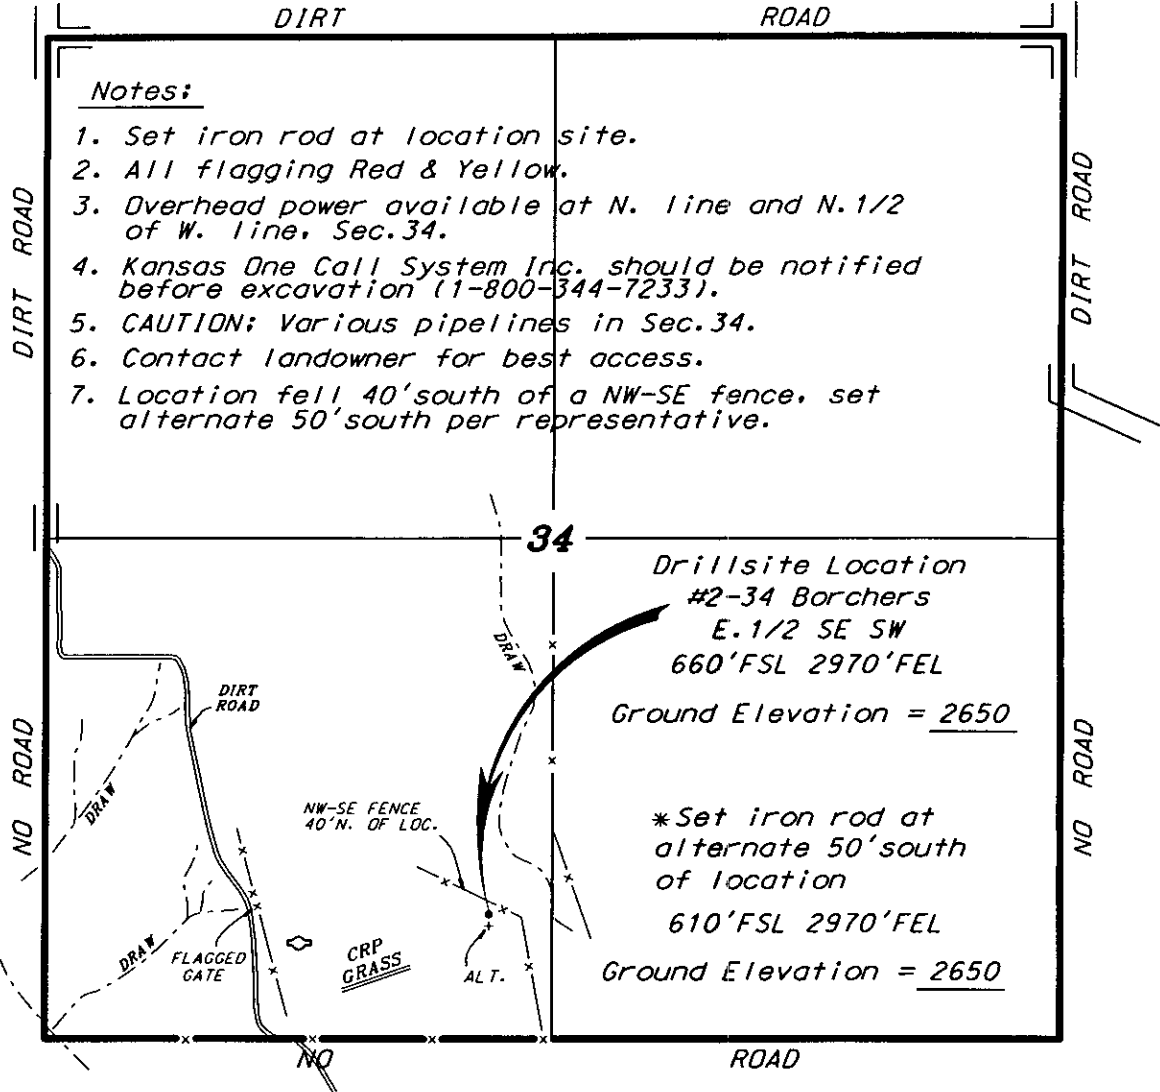 DIRT ROAD
DIRT ROAD
DIRT ROAD
Notes:
1. Set iron rod at location site.
2. All flagging Red & Yellow.
3. Overhead power available at N. line and N.1/2
of W. line, Sec.34.
4. Kansas One Call System Inc. should be notified
before excavation (1-800-344-7233).
5. CAUTION: Various pipelines in Sec.34.
6. Contact landowner for best access.
7. Location fell 40'south of a NW-SE fence, set
alternate 50'south per representative.
34
Drillsite Location
#2-34 Borchers
E.1/2 SE SW
660'FSL 2970'FEL
Ground Elevation = 2650
*Set iron rod at
alternate 50'south
of location
610'FSL 2970'FEL
Ground Elevation = 2650
DRAW
DIRT
ROAD
NO ROAD
NO ROAD
DRAW
NW-SE FENCE
40'N. OF LOC.
DRAW
FLAGGED
GATE
CRP
GRASS
ALT.
NO ROAD